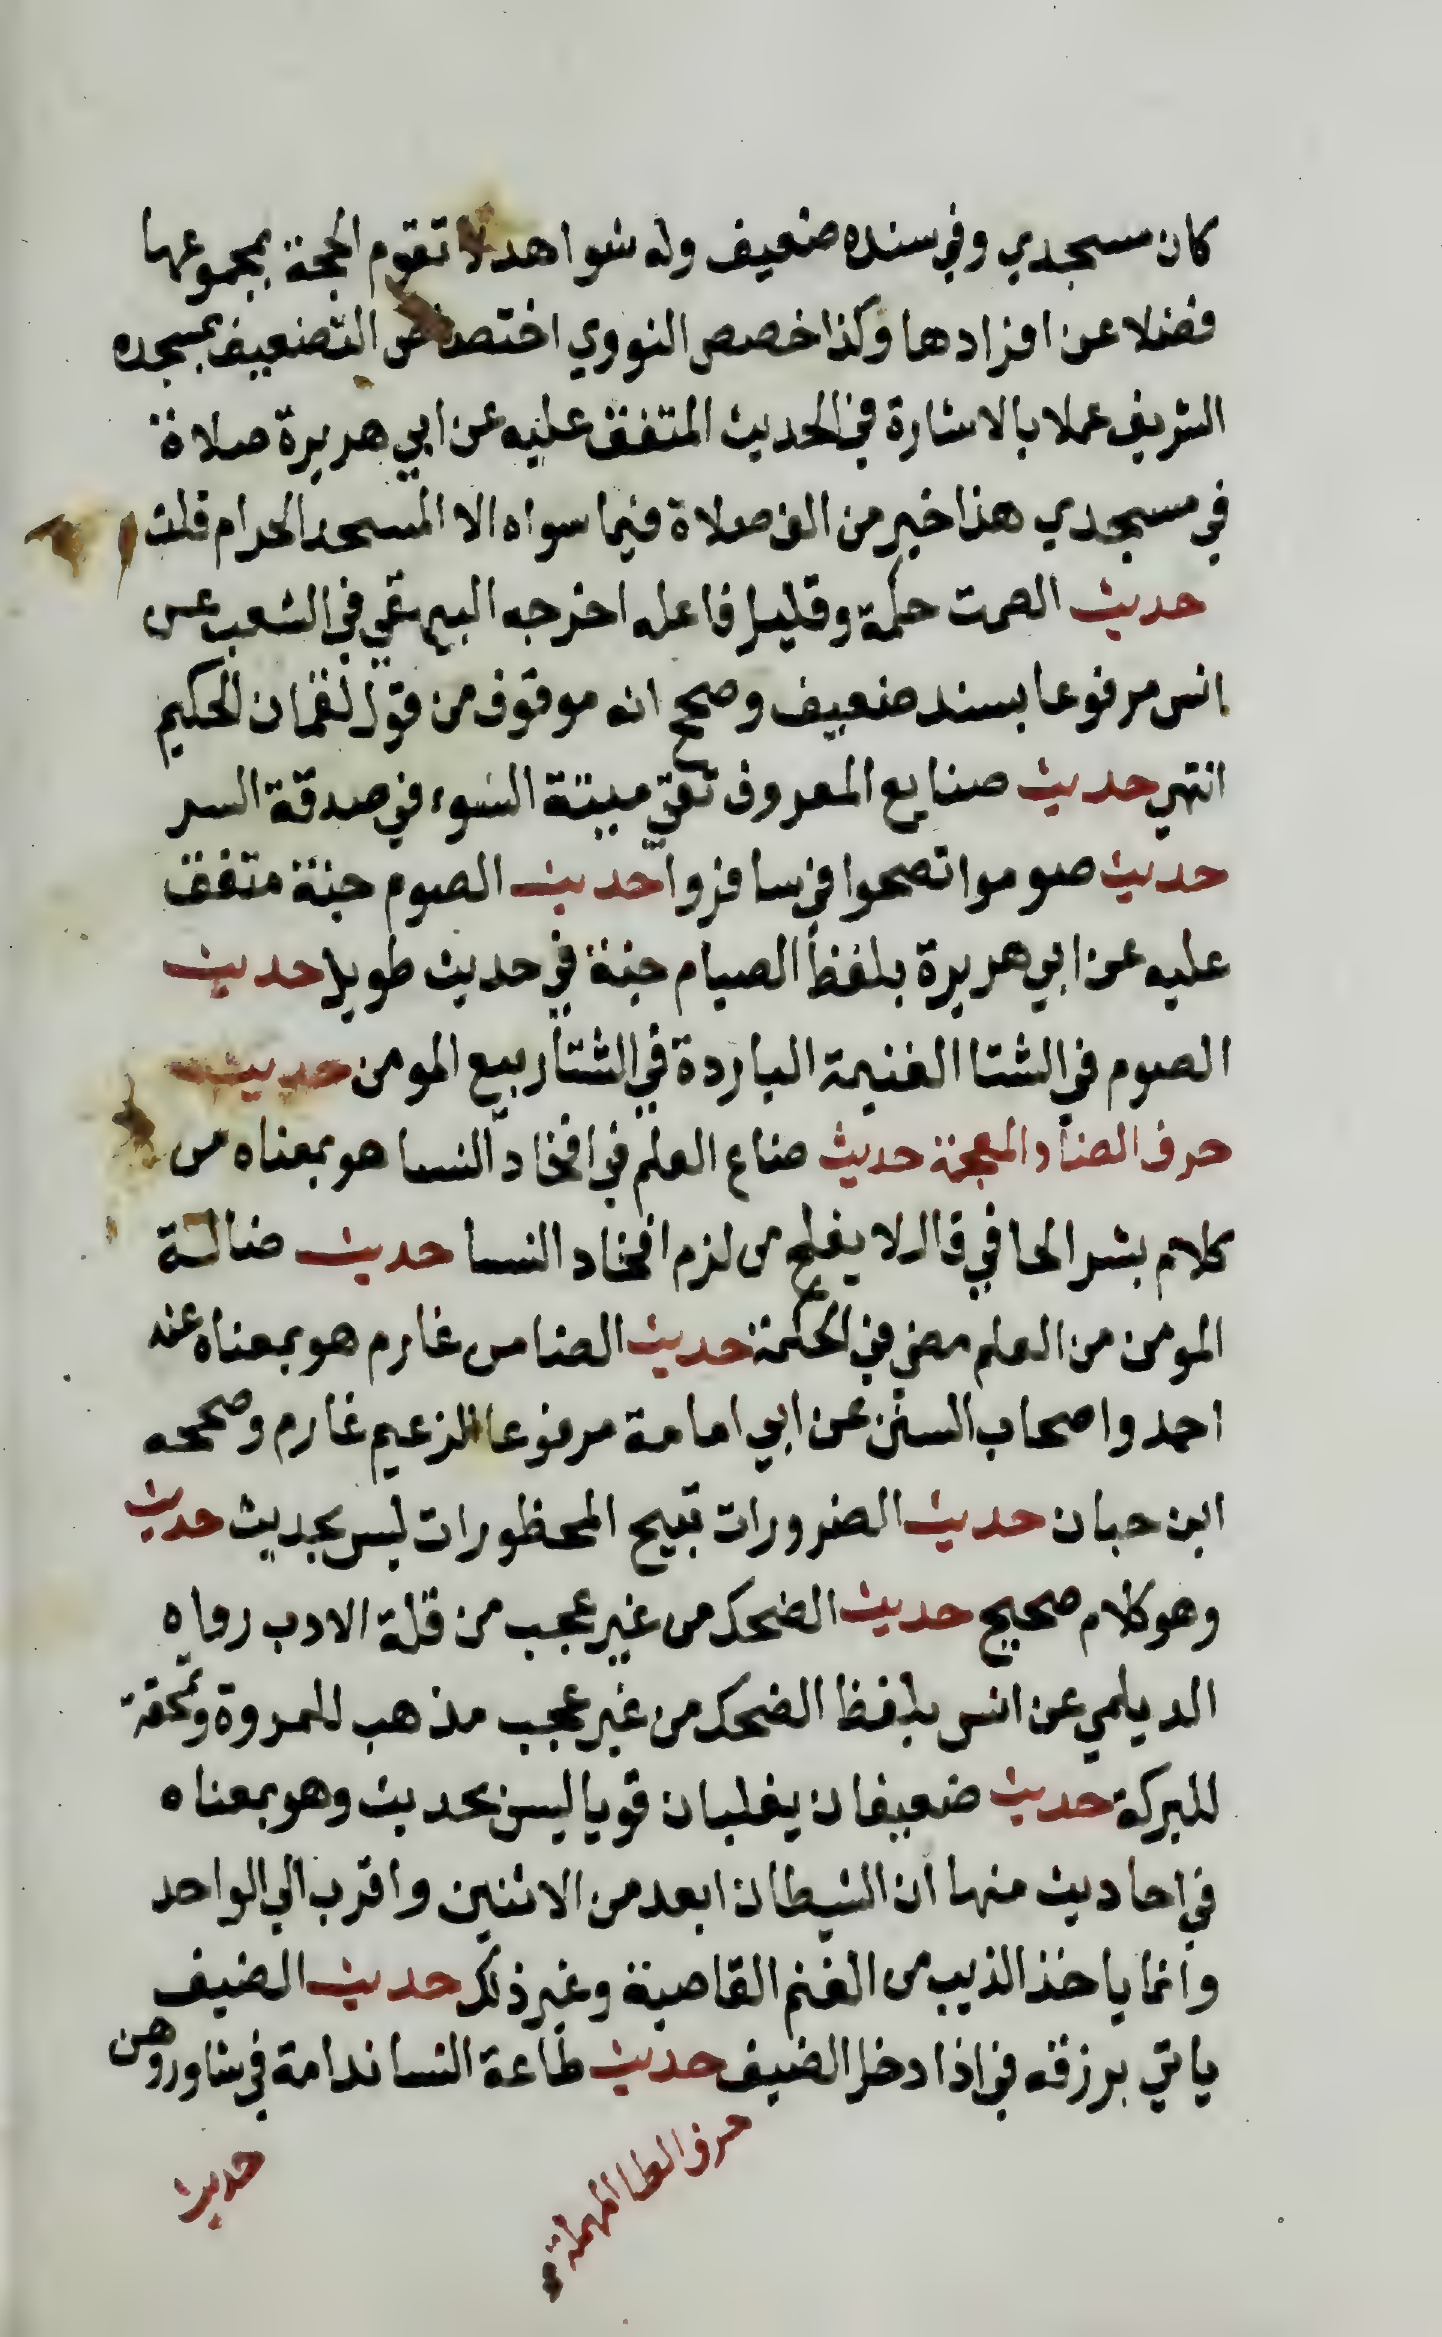 كان مسجدي وفي سنده ضعيف وله شواهد لا تقوم الحجة بمجموعها
فضلا عن افرادها وكذا خصص النووي اختصاص التضعيف بمسجده
الشريف عملا بالاشارة في الحديث المتفق عليه عن ابي هريرة صلاة
في مسجدي هذا خير من الف صلاة فيما سواه الا المسجد الحرام قلت
حديث الصمت حكمة وقليل فاعله اخرجه البيهقي في الشعب عن
انس مرفوعا بسند ضعيف وصحح انه موقوف من قول لقمان الحكيم
انتهى حديث صنايع المعروف تقي ميتة السوء في صدقة السر
حديث صوموا تصحوا في سافروا حديث الصوم جنة متفق
عليه عن ابي هريرة بلفظ الصيام جنة في حديث طويل حديث
الصوم في الشتا الغنيمة الباردة في الشتا ربيع المومن حديث
حرف الضاد المعجمة حديث ضاع العلم في افخاد النسا هو بمعناه من
كلام بشر الحافي قال لا يفلح من لزم افخاد النسا حديث ضالة
المومن من العلم مضى في الحكمة حديث الضامن غارم هو بمعناه عند
احمد واصحاب السنن عن ابي امامة مرفوعا الزعيم غارم وصححه
ابن حبان حديث الضرورات تبيح المحظورات ليس بحديث حديث
وهو كلام صحيح حديث الضحك من غير عجب من قلة الادب رواه
الديلمي عن انس بلفظ الضحك من غير عجب مذهب للمروة وممحقة
للبركة حديث ضعيفان يغلبان قويا ليس بحديث وهو بمعناه
في احاديث منها ان الشيطان ابعد من الاثنين واقرب الي الواحد
وانما ياخذ الذيب من الغنم القاصية وغير ذلك حديث الضيف
ياتي برزقه في اذا دخل الضيف حديث طاعة النسا ندامة في شاوروهن
حرف الطا المهملة
حديث